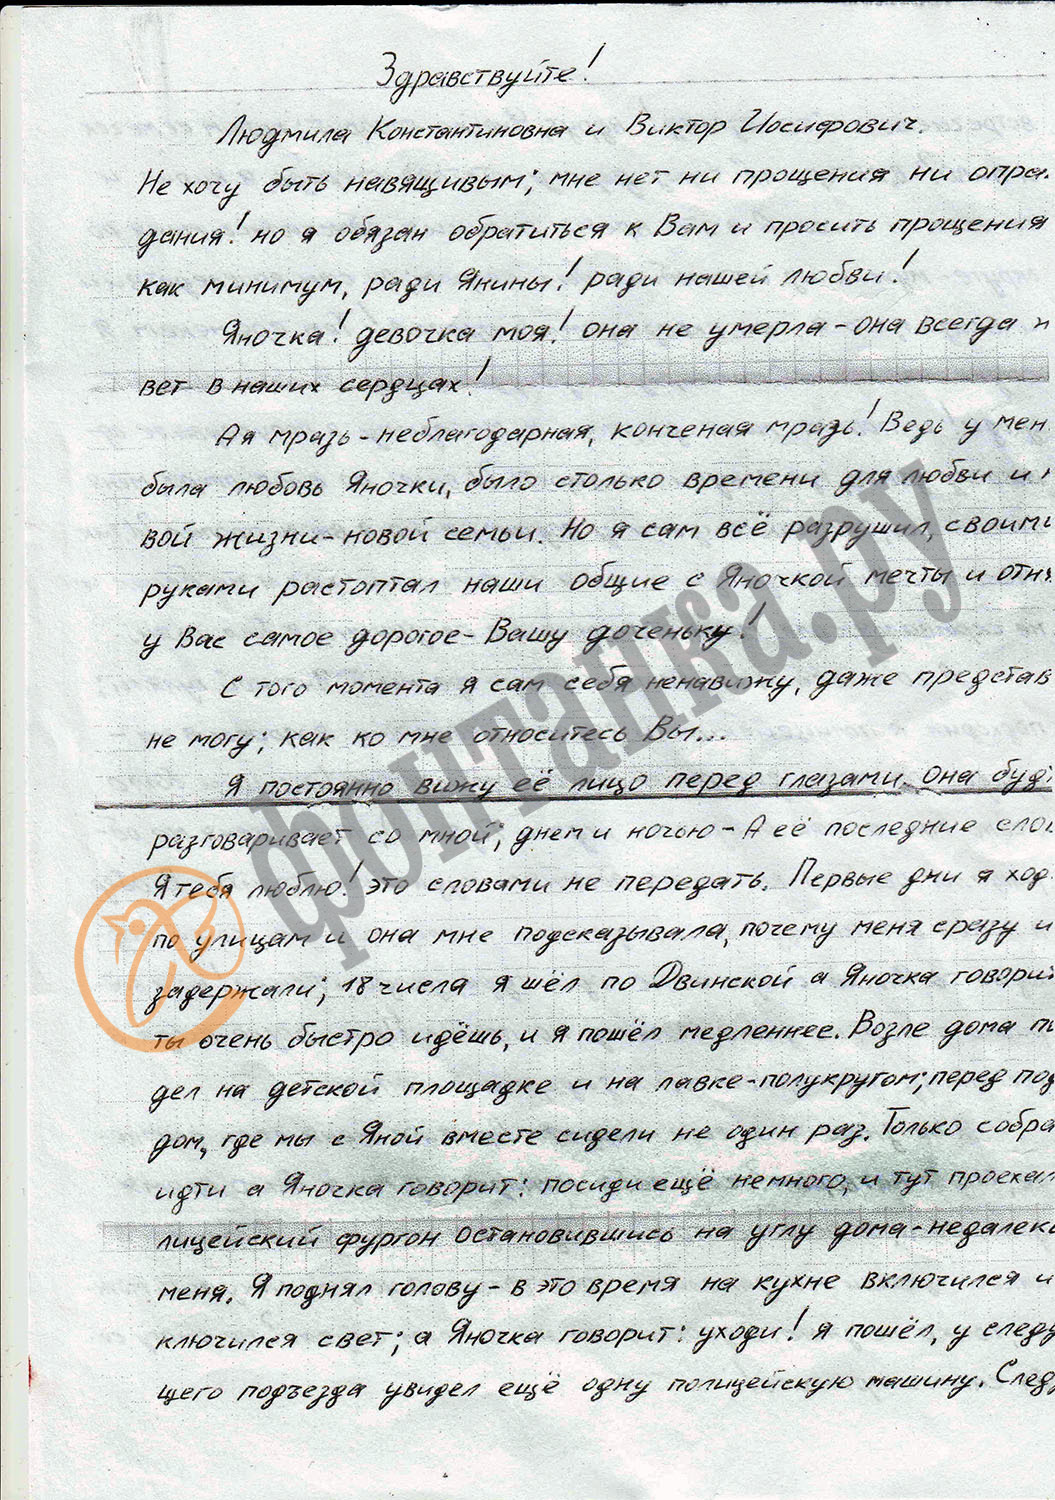 Здравствуйте!
Людмила Константиновна и Виктор Иосифович.
Не хочу быть навящивым; мне нет ни прощения ни опра
дания! но я обязан обратиться к Вам и просить прощения
как минимум, ради Янины! ради нашей любви!
Яночка! девочка моя! она не умерла - она всегда
вет в наших сердцах!
А я мразь - неблагодарная, конченая мразь! Ведь у мен
была любовь Яночки, было столько времени для любви и н
вой жизни - новой семьи. Но я сам всё разрушил, своими
руками растоптал наши общие с Яночкой мечты и отня
у Вас самое дорогое - Вашу доченьку!
С того момента я сам себя ненавижу, даже представ
не могу; как ко мне относитесь Вы...
Я постоянно вижу её лицо перед глазами. Она буд
разговаривает со мной; днем и ночью - А её последние сло
Я тебя люблю! это словами не передать. Первые дни я ход
по улицам и она мне подсказывала, почему меня сразу и
задержали; 18 числа я шёл по Двинской а Яночка говори
ты очень быстро идёшь, и я пошёл медленнее. Возле дома
дел на детской площадке и на лавке - полукругом; перед под
дом, где мы с Яной вместе сидели не один раз. Только собра
идти а Яночка говорит: посиди ещё немного, и тут проехал
лицейский фургон остановившись на углу дома - недалеко
меня. Я поднял голову - в это время на кухне включился и
ключился свет; а Яночка говорит: уходи! я пошёл, у следу
щего подъезда увидел ещё одну полицейскую машину. След
фонтанка.ру